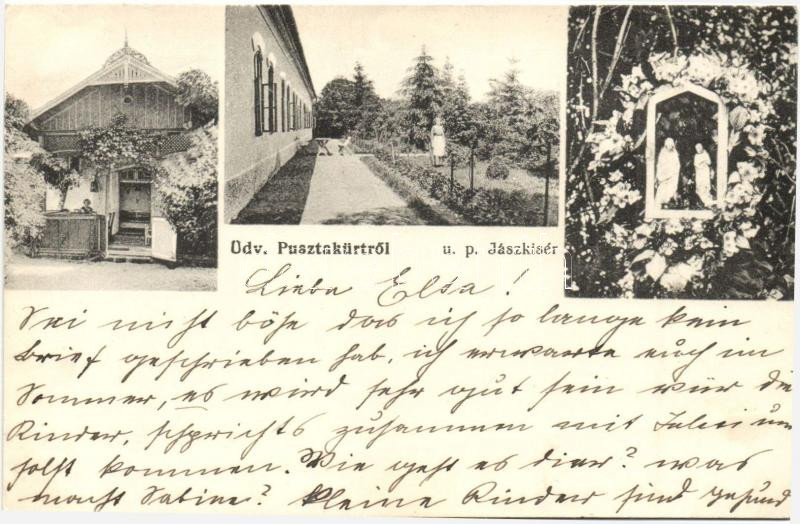 Üdv. Pusztakürtről u. p. Jászkisér
Liebe Elsa!
Sei nicht böse das ich so lange kein
Brief geschrieben hab, ich erwarte euch im
Sommer, es wird sehr gut sein für die
Kinder, sprichts zusammen mit
sollst kommen. Wie geht es dier? was
macht Sabine? kleine Kinder sind gesund